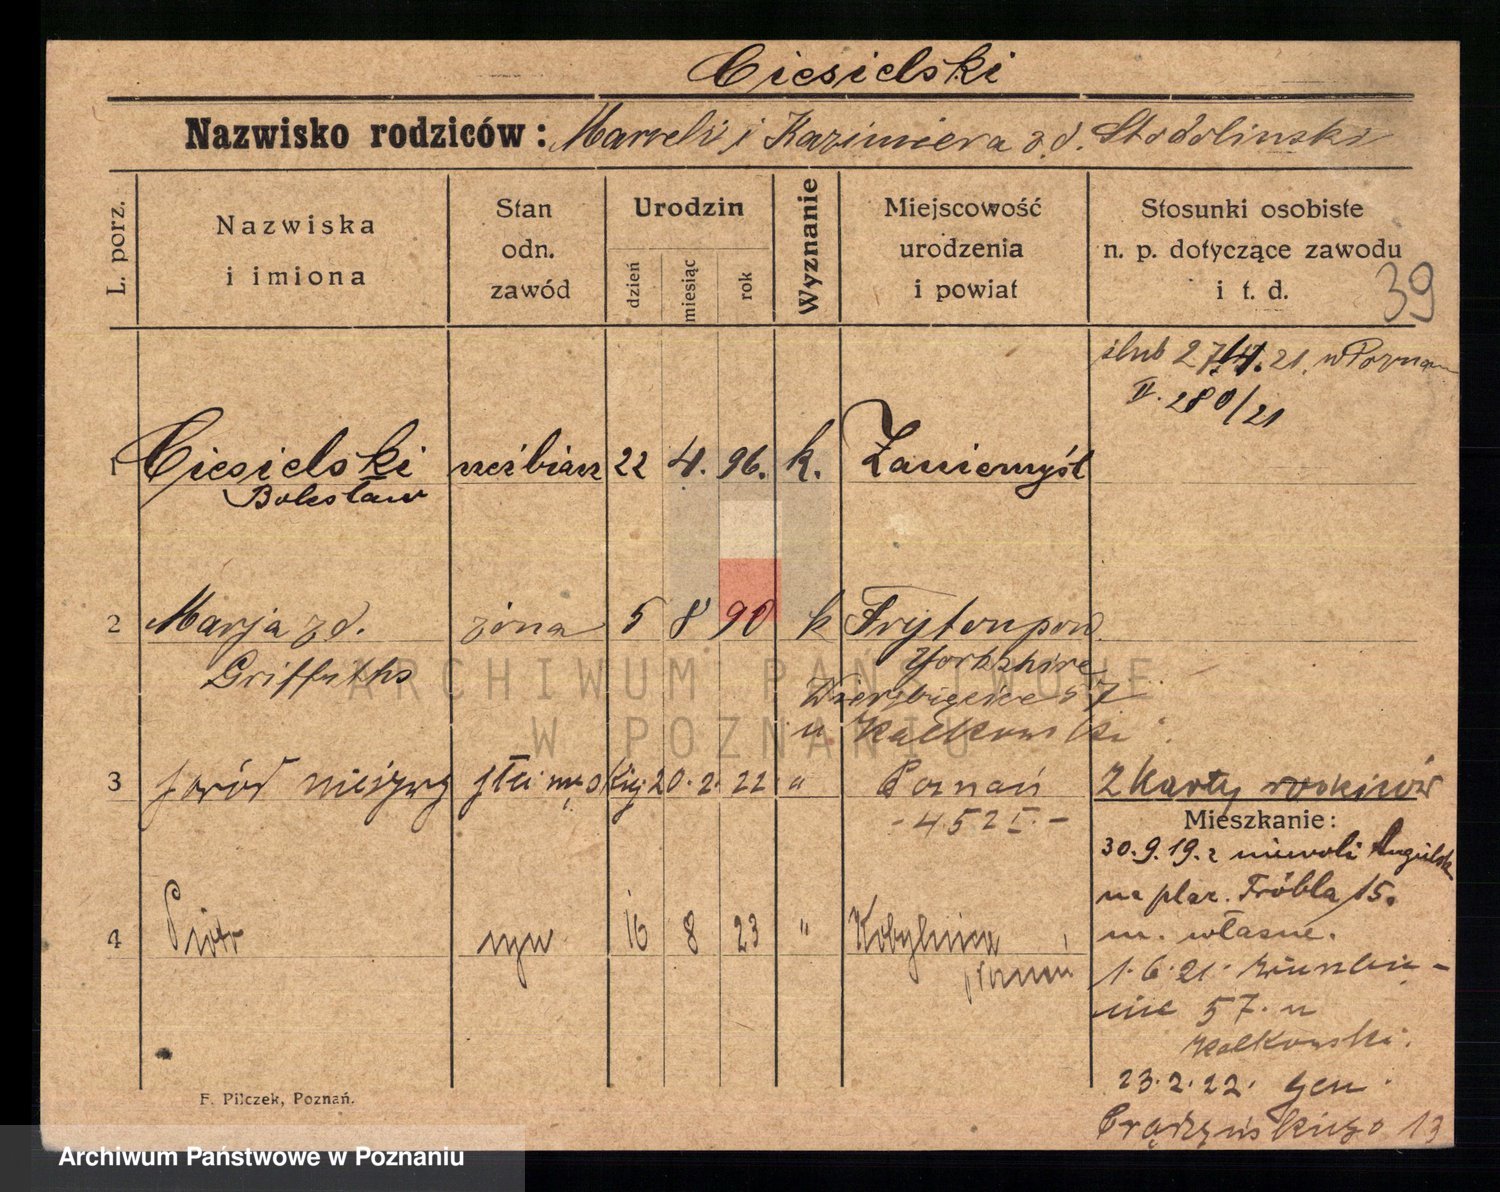 Ciesielski
Nazwisko rodziców: Marceli i Kazimiera z d. Stodolinski
39
L. porz.
Nazwiska
i imiona
Stan
odn.
zawód
Urodzin
dzień
miesiąc
rok
Wyznanie
Miejscowość
urodzenia
i powiat
Stosunki osobiste
n. p. dotyczące zawodu
i t. d.
ślub 27/4. 21. w Poznan
II. 280/21
1 Ciesielski rzeźbiarz 22 4. 96. k. Zaniemyśl
Bolesław
2 Marja z d. żona 5 8 90 k Frytonpow
Griffiths Yorkshire
Wierzbięcice 57
u Kałkowski
3 poród nieżywy płci męskiej 20. 2. 22. " Poznań 2 karty rodziców
- 452 I. -
Mieszkanie:
30. 9. 19. z niewoli Angielsk
na plac. Fröbla 15.
4 Piotr syn 16 8 23 " Kobylnica
m. własne.
1. 6. 21. Wierzbię-
cice 57. u
Kałkowski.
23. 2. 22. Gen.
Prądzyńskiego 13
F. Pilczek, Poznań.
ARCHIWUM PAŃSTWOWE
W POZNANIU
Archiwum Państwowe w Poznaniu